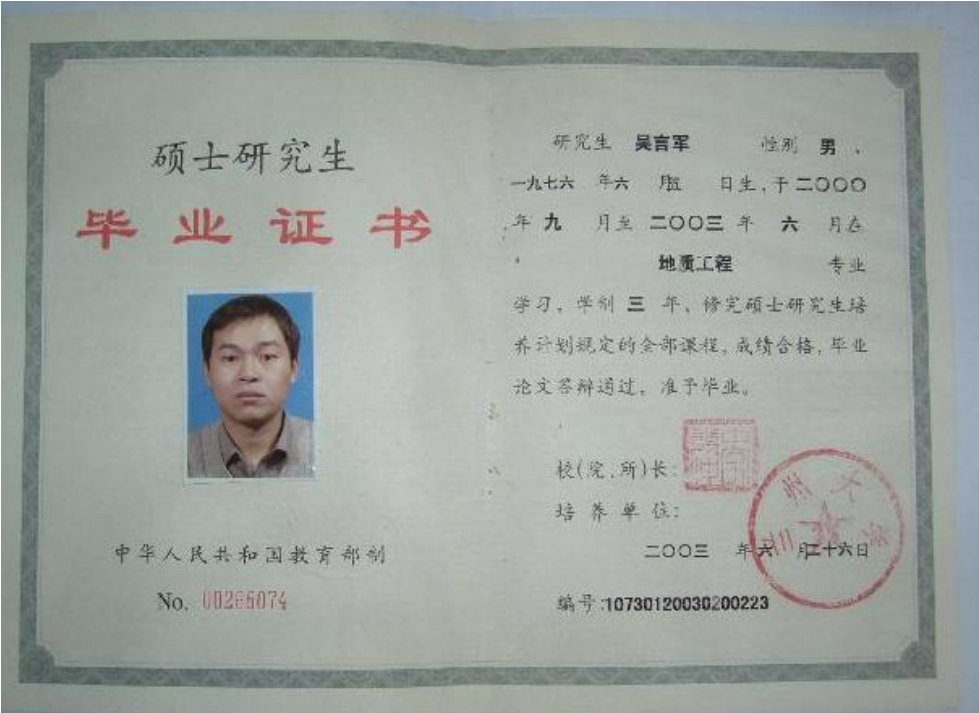 硕士研究生
毕业证书
中华人民共和国教育部制
No. 00266074
研究生 吴言军 性别 男、
一九七六 年六 月五 日生,于二〇〇〇
年 九 月至 二〇〇三 年 六 月在
地质工程 专业
学习。学制 三 年,修完硕士研究生培
养计划规定的全部课程,成绩合格,毕业
论文答辩通过。准予毕业。
校(院、所)长:
培养单位:
二〇〇三 年六 月二十六日
编号:10730120030200223